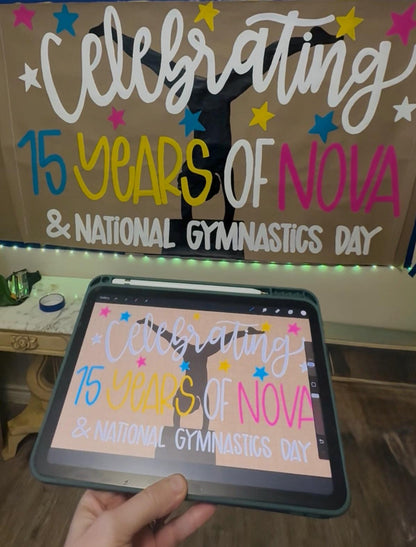 Celebrating
15 YEARS OF NOVA
& NATIONAL GYMNASTICS DAY
Celebrating
15 YEARS OF NOVA
& NATIONAL GYMNASTICS DAY